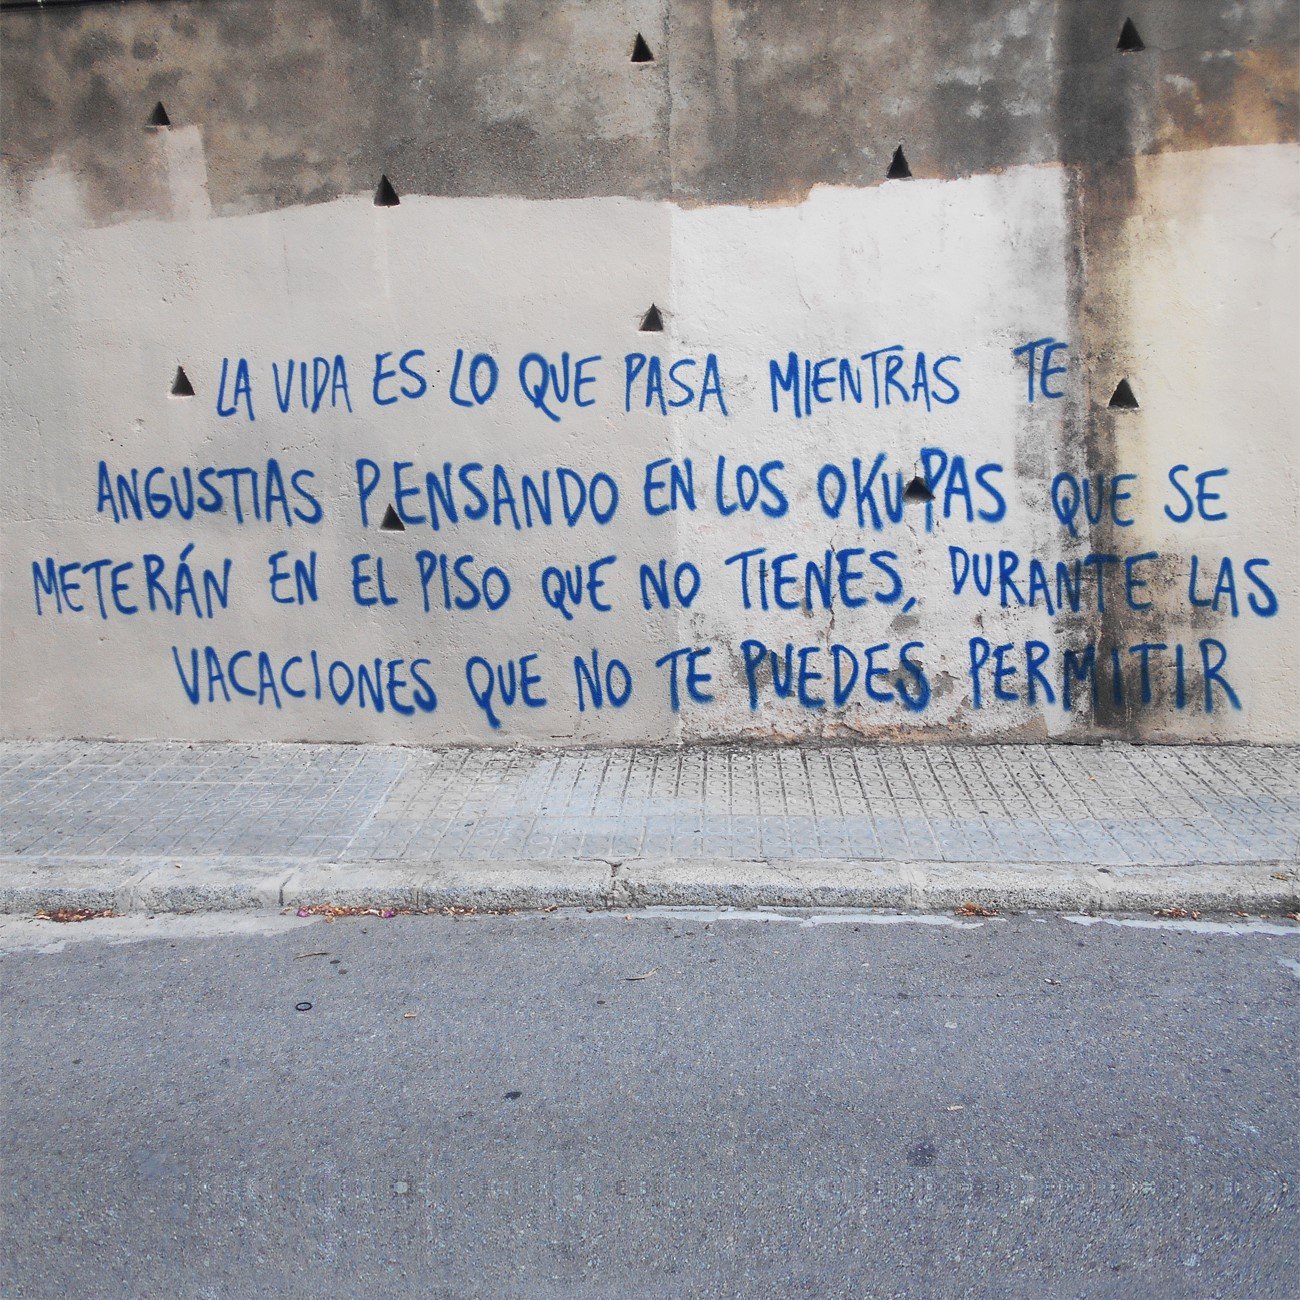 LA VIDA ES LO QUE PASA MIENTRAS TE
ANGUSTIAS PENSANDO EN LOS OKUPAS QUE SE
METERÁN EN EL PISO QUE NO TIENES, DURANTE LAS
VACACIONES QUE NO TE PUEDES PERMITIR